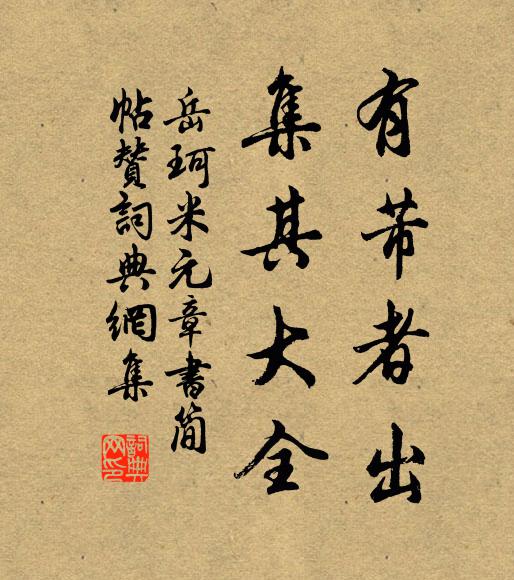 有芾者出
集其大全
岳珂米元章書簡
帖贊詞典網集
詞典网印